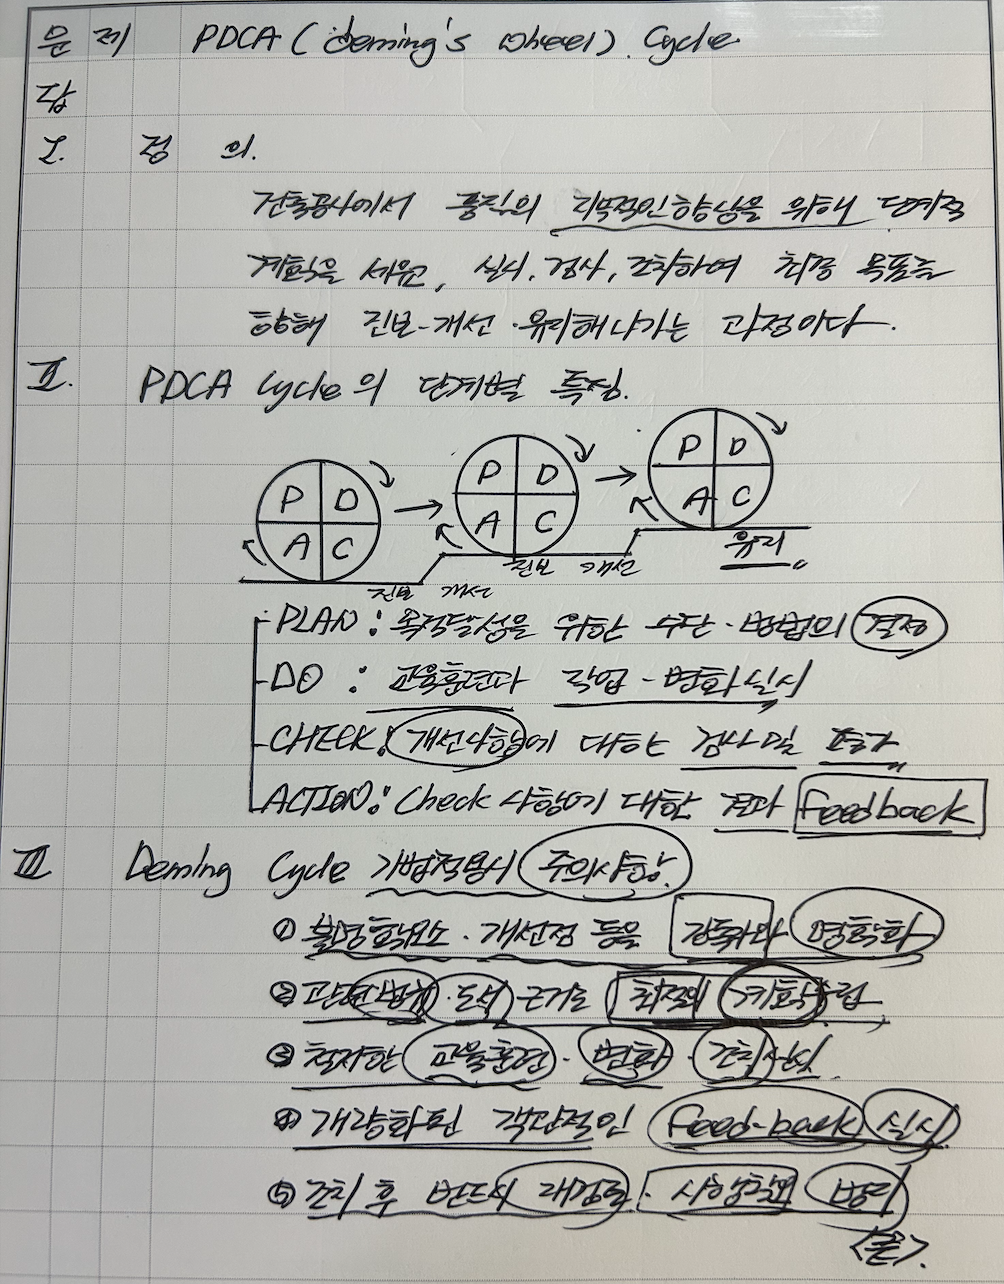 문제 PDCA (deming's wheel) Cycle
답
I. 정의.
건축공사에서 품질의 지속적인 향상을 위해 단계적
계획을 세워, 실시, 검사, 조치하여 최종 목표를
향해 진보·개선·유지해나가는 과정이다.
II. PDCA Cycle의 단계별 특징.
P D A C → P D A C → P D A C
유지
진보 개선
진보 개선
PLAN : 목적달성을 위한 수단·방법의 결정
DO : 교육훈련과 작업·변화 실시
CHECK : 개선사항에 대한 검사 및
ACTION : Check 사항에 대한 결과 feedback
III Deming Cycle 기법적용시 주의사항.
① 불명확요소·개선점 등을 명확화
② 관련 도서 근거로
③ 적자한 교육훈련·변화·조치
④ 계량화된 객관적인 feed-back 실시
⑤ 조치 후 반드시 재검토·사항확인
<끝>.